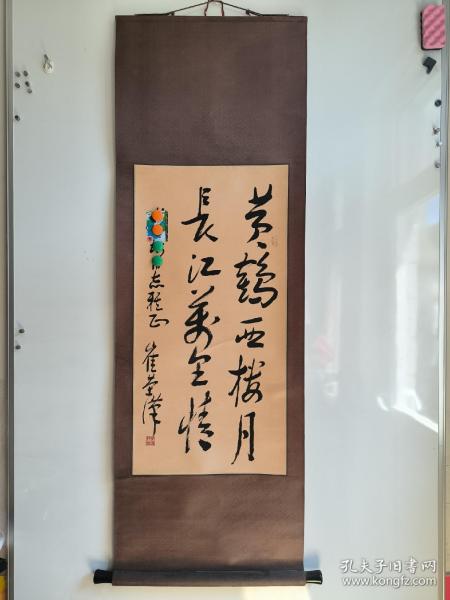 黄鹤西楼月
長江萬里情
同志雅正 崔荣汉
孔夫子旧书网
www.kongfz.com